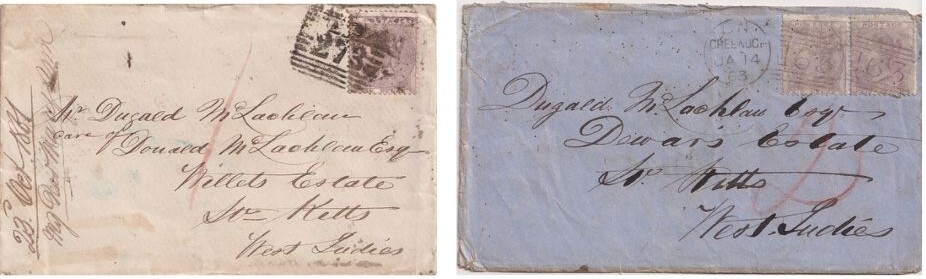 23rd Oct 1861
Mr Dugald McLachlan
care of Donald McLachlan Esqr
Willets Estate
St Kitts
West Indies
1
GREENOCK
JA 14
63
Dugald McLachlan Esqr
Dewars Estate
St Kitts
West Indies
2